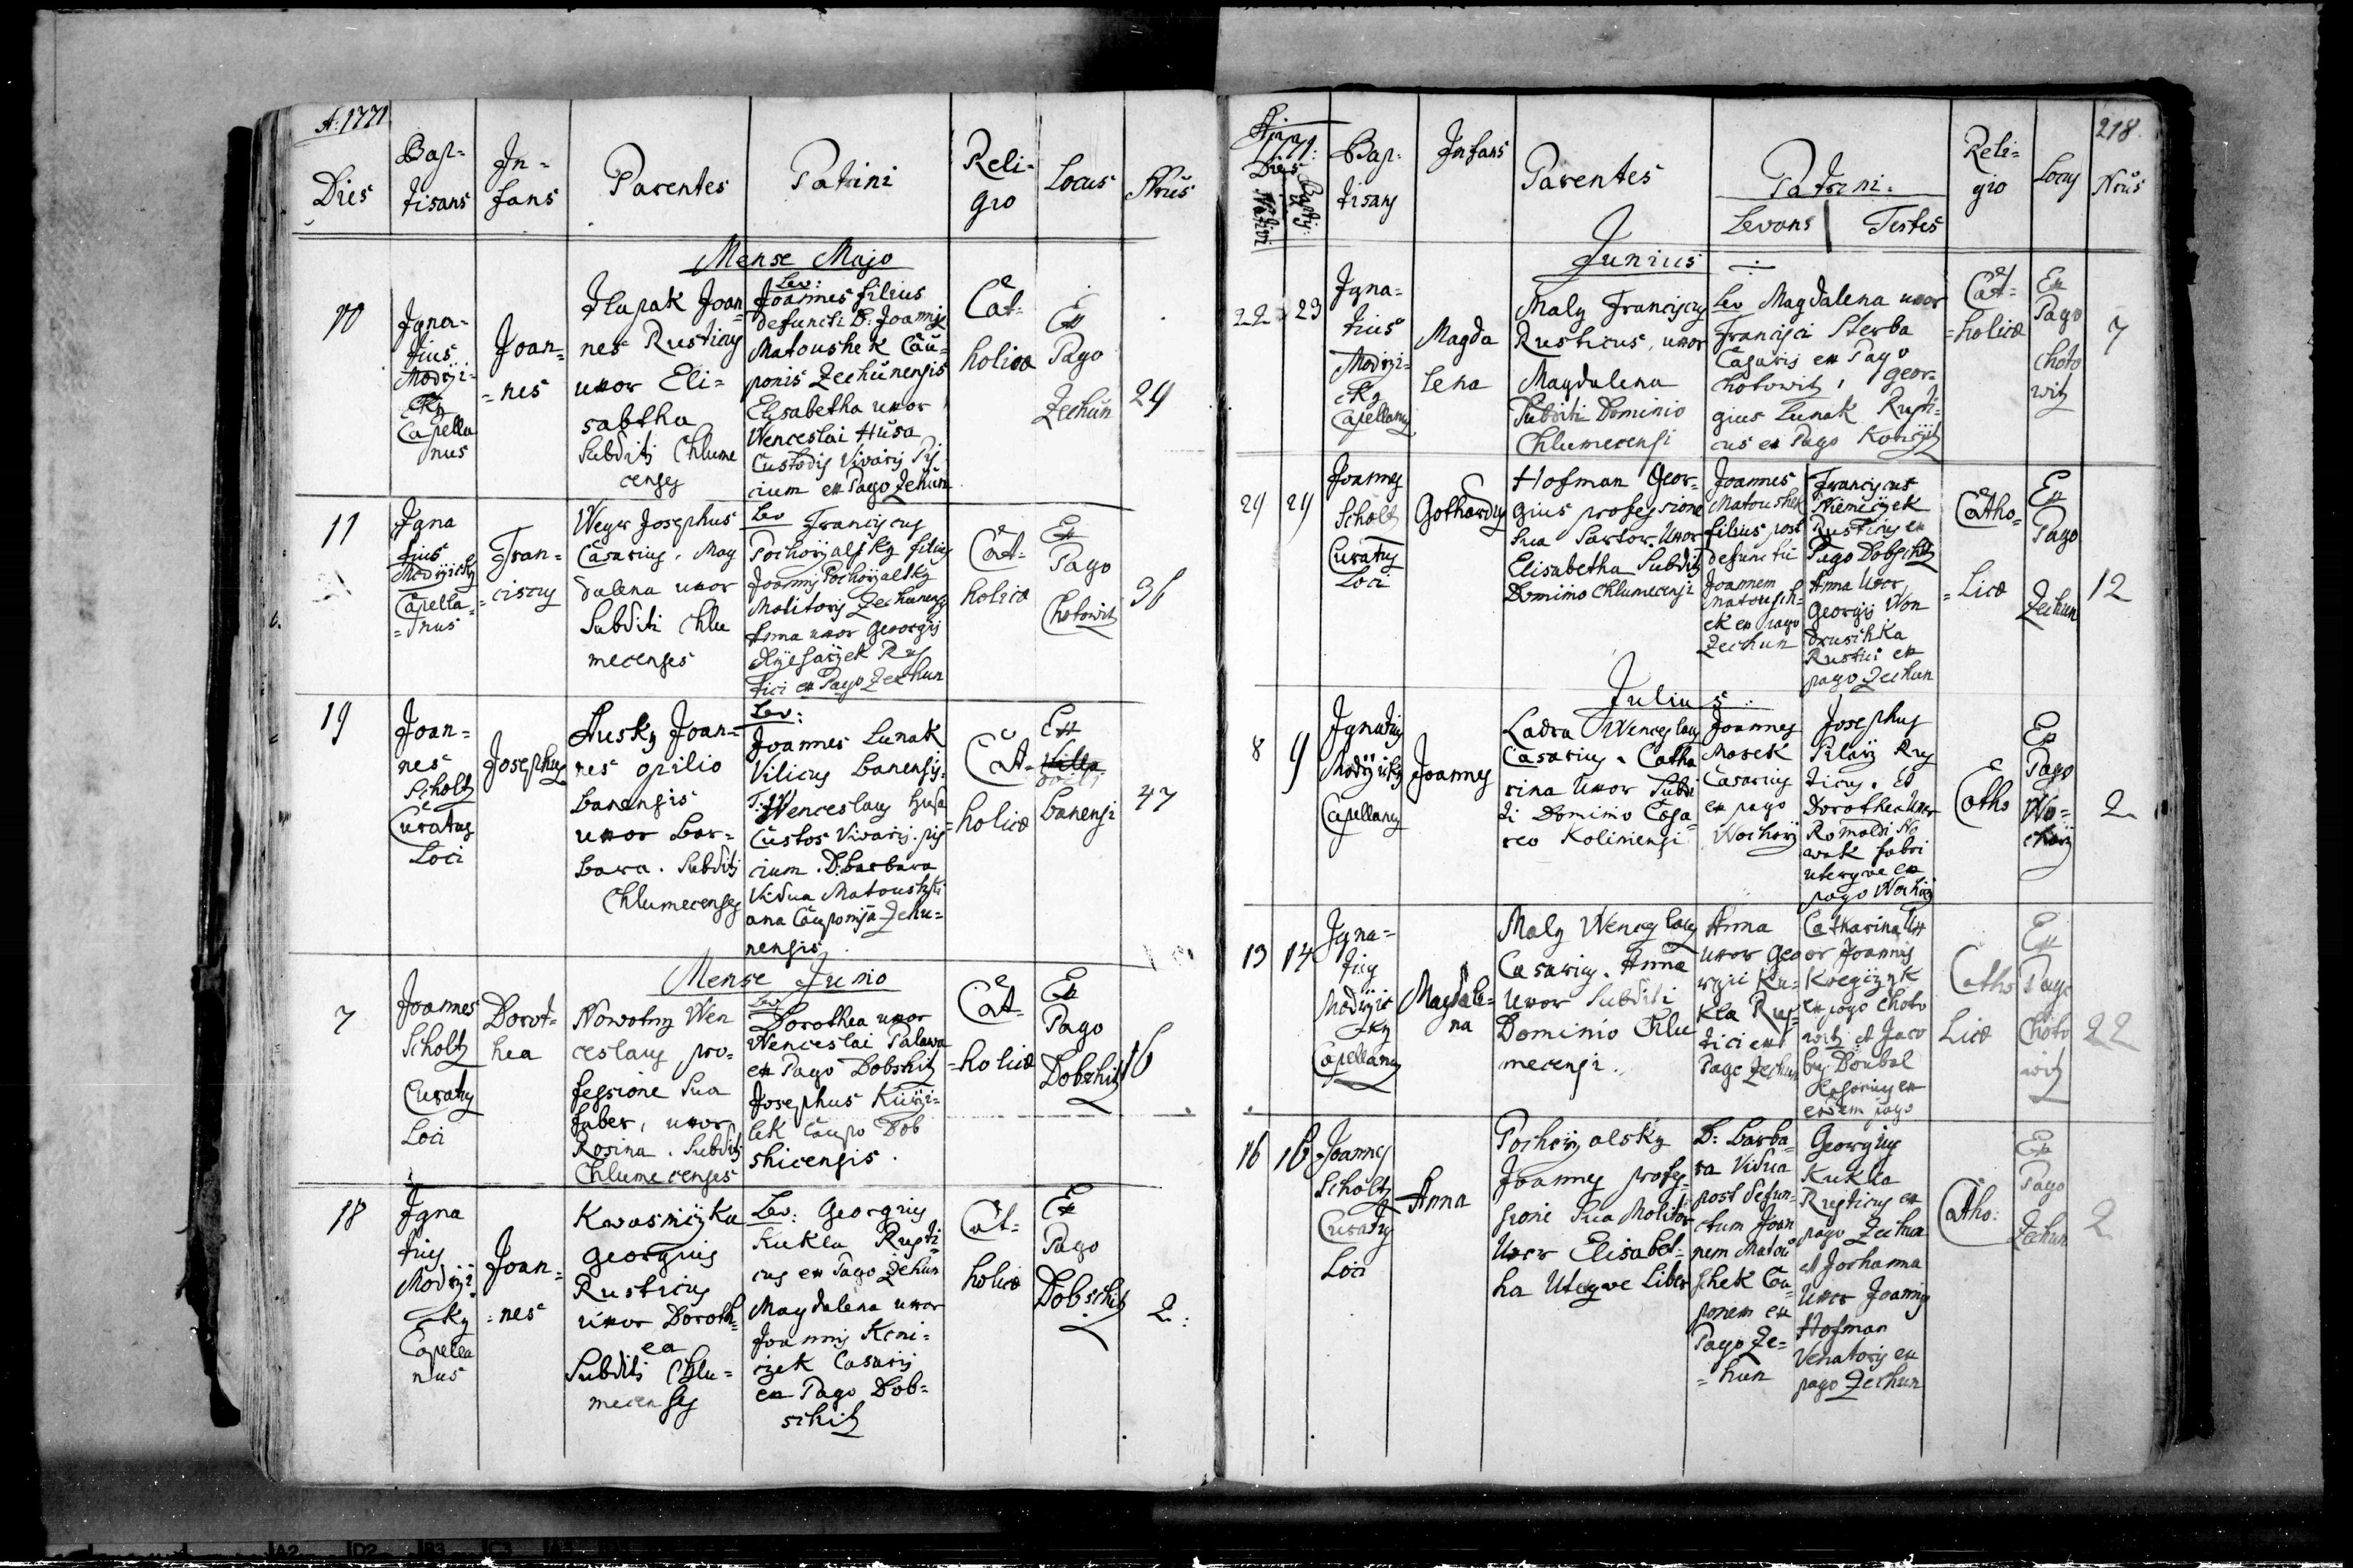 A: 1771
Dies
Bap-
tisans
In-
fans
Parentes
Patrini
Reli-
gio
Locus
Nrus
Mense Majo
10
Igna-
tius
Capella
nus
Joan-
=nes
Joan
nes Rusticus
uxor Eli=
sabtha
Subditi Chlume
censes
Lev:
Joannes filius
defuncti D: Joannis
Matoushek Cau-
ponis Zechunensis
Elisabetha uxor
Wenceslai Husa
Custodis Vivarij
ex Pago Zehun
Cat-
holica
Ex
Pago
Zechun
29
11
Igna
tius
Capella-
=nus
Fran-
=ciscus
Josephus
Casarius. Mag
dalena uxor
Subditi Chlu
mecenses
Lev Franciscus
filius
Joannis
Molitoris Zechunensis
Anna uxor Georgij
Rus
tici ex Pago Zechun
Cat-
holica
Ex
Pago
Chotowitz
36
19
Joan=
nes
Scholtz
Curatus
Loci
Josephus
Joan=
nes opilio
Banensis
uxor Bar=
bara. Subditi
Chlumecenses
Lev:
Joannes Lunak
Vilicus Banensis.
T: Wenceslaus Husa
Custos Vivarij pis
cium. D: Barbara
Vidua
Zehu=
nensis
Cat-
=holica
Ex
Banensi
47
Mense Junio
7
Joannes
Scholtz
Curatus
Loci
Dorot=
hea
Nowotny Wen
ceslaus pro=
fessione Sua
faber, uxor
Rosina. Subditi
Chlumecenses
Lev
Dorothea uxor
Wenceslai Palawa
ex Pago Dobshitz
Josephus
lek Caupo Dob
shicensis.
Cat-
=holica
Ex
Pago
Dobshitz
16
18
Igna
tius
Capella
nus
Joan=
=nes
Georgius
Rusticus
uxor Doroth=
ea
Subditi Chlu=
mecenses
Lev: Georgius
Kukla Rusti
cus ex Pago Zehun
Magdalena uxor
Joannis
Casarij
ex Pago Dob=
schitz
Cat=
holica
Ex
Pago
Dobschitz
2:
1771:
Dies
Bap-
tisans
Infans
Parentes
Patrini.
Levans
Testes
Reli=
gio
Locus
218.
Nrus
Junius
22
23
Igna=
tius
Capellanus
Magda
lena
Maly Franciscus
Rusticus, uxor
Magdalena
Subditi Dominio
Chlumecensi
Lev Magdalena uxor
Francisci Sterba
Casarij ex Pago
Chotowitz, Geor=
gius Lunak Rusti=
cus ex Pago
Cat=
=holica
Ex
Pago
Choto
witz
7
29
29
Joannes
Scholtz
Curatus
Loci
Gothardus
Hofman Geor=
gius professione
Sua Sartor. Uxor
Elisabetha Subditi
Dominio Chlumecensi
Joannes
Matoushek
filius post
defunctu
Joannem
Matoush=
ek ex pago
Zechun
Franciscus
Rusticus ex
Pago Dobschitz
Anna Uxor
Georgij Won
druschka
Rustici ex
pago Zechun
Catho=
=lica
Ex
Pago
Zechun
12
Julius
8
9
Ignatius
Capellanus
Joannes
Ladra Wenceslaus
Casarius. Catha
rina Uxor Subdi
ti Dominio Casa=
reo Koliniensi
Joannes
Marek
Casarius
ex pago
Josephus
Rus
ticus. Et
Dorothea Uxor
Romaldi No
wak fabri
uterque ex
pago
Catho
Ex
Pago
2
13
14
Igna=
tius
Capellanus
Magdale=
na
Maly Wenceslaus
Casarius. Anna
Uxor Subditi
Dominio Chlu
mecensi.
Anna
uxor Geo
rgii Ku=
kla Rus
tici ex
Pago Zechun
Catharina Ux
or Joannis
ex pago Choto
witz et Jaco
bus Doubal
Casarius ex
eodem pago
Catho
lica
Ex
Pago
Choto
witz
22
16
16
Joannes
Scholtz
Curatus
Loci
Anna
Joannes profes=
sione Sua Molitor
Uxor Elisabet=
ha Uterque Liber
D: Barba
ra Vidua
post defun=
ctum Joan
nem Matou
shek Cau
ponem ex
Pago Ze=
=hun
Georgius
Kukla
Rusticus ex
pago Zechun
et Johanna
Uxor Joannis
Hofman
Venatoris ex
pago Zechun
Catho:
Ex
Pago
Zechun
2